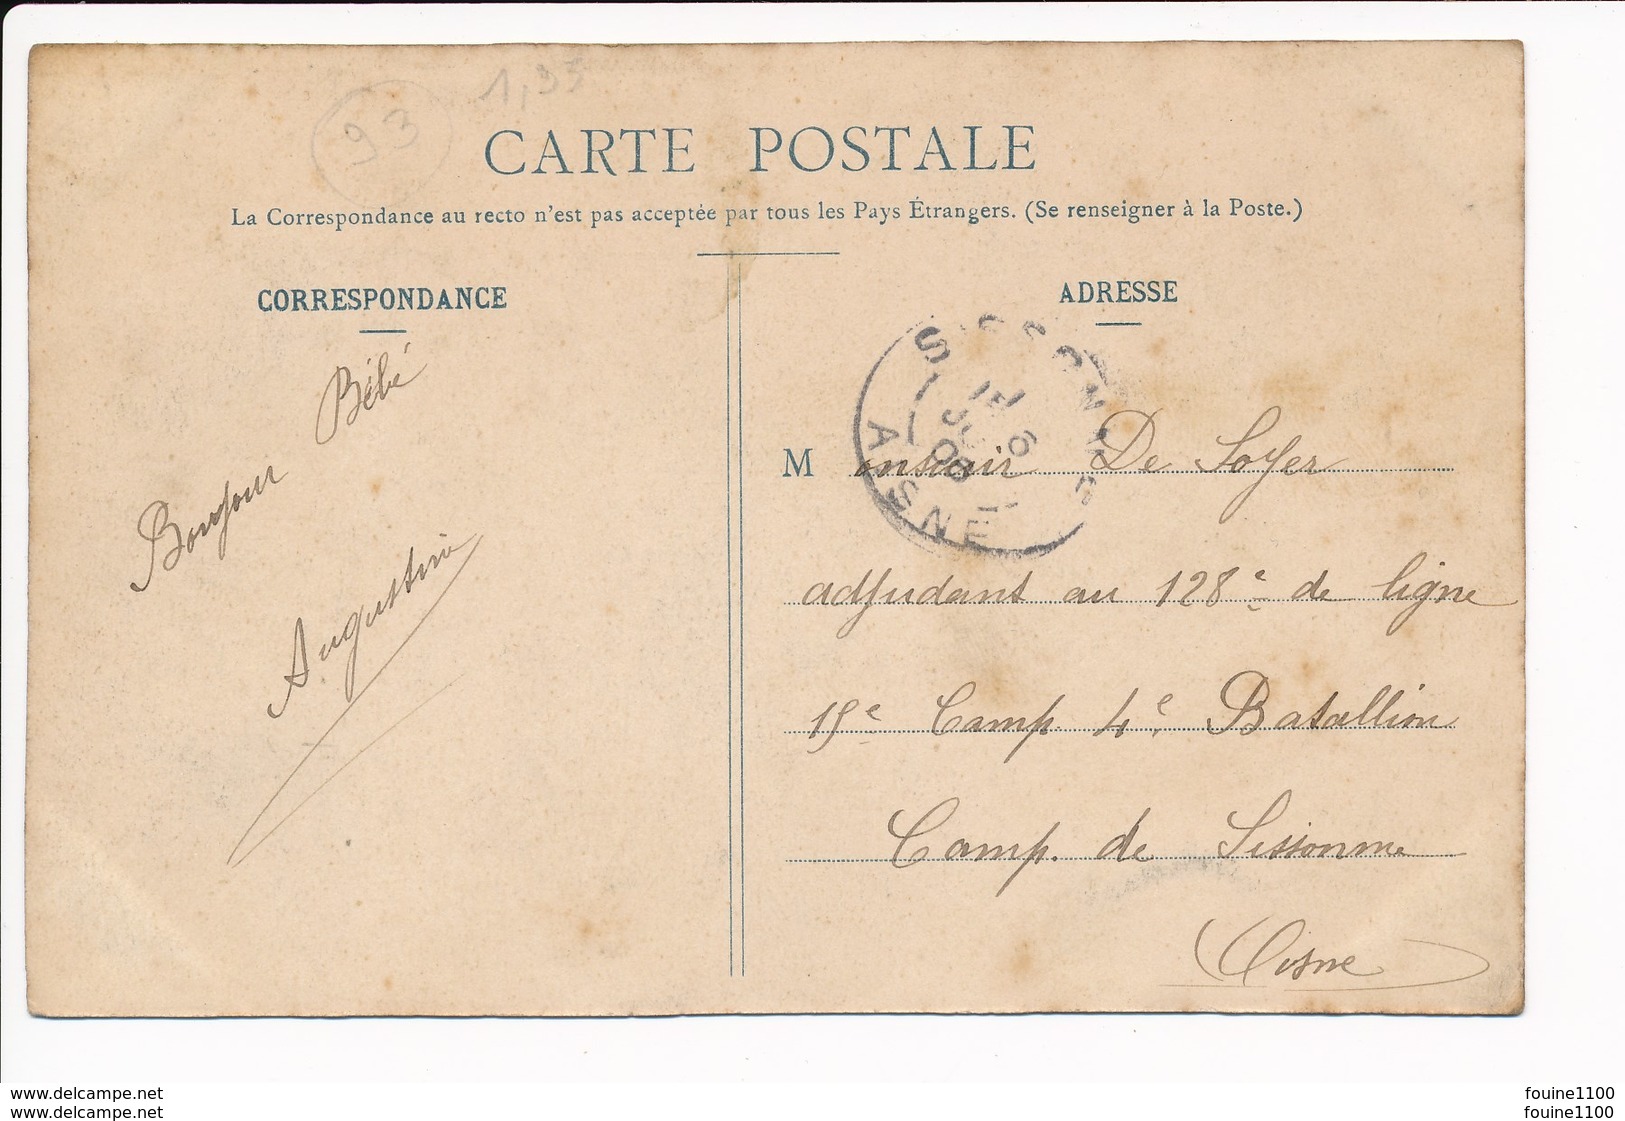 93
1,35
CARTE POSTALE
La Correspondance au recto n'est pas acceptée par tous les Pays Étrangers. (Se renseigner à la Poste.)
CORRESPONDANCE
Bonjour Bébé
Augustine
ADRESSE
SISSONNE
6
08
AISNE
M onsieur De Soyer
adjudant au 128e de ligne
15e Camp. 4e Batallion
Camp. de Sissonne
(Aisne)
www.delcampe.net
www.delcampe.net
fouine1100
fouine1100